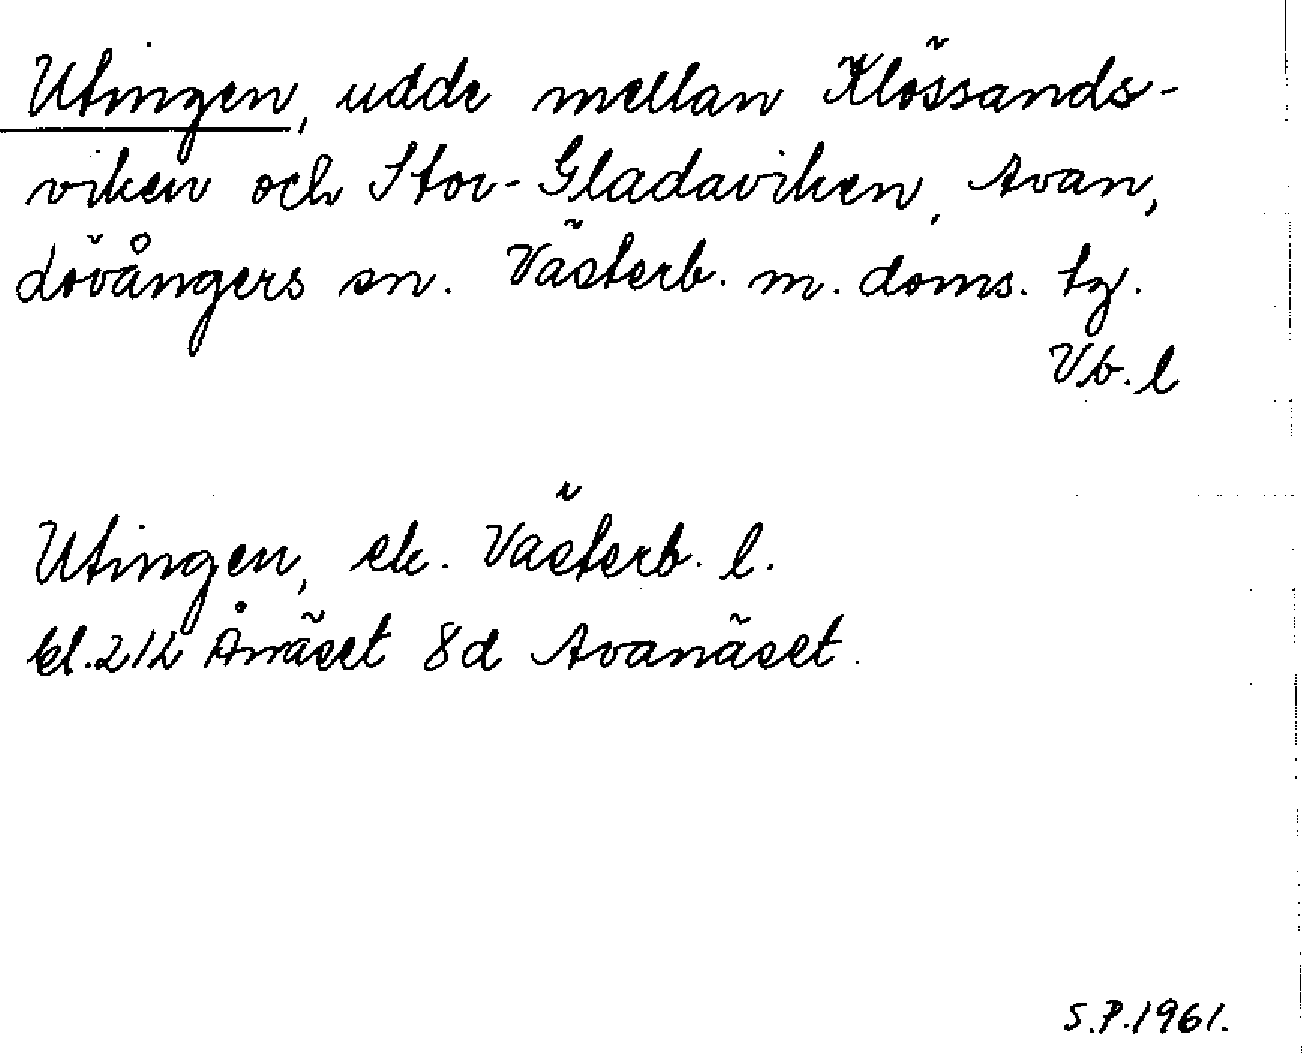 Utingen, udde mellan Klössands-
viken och Stor-Gladaviken, Avan,
Lövångers sn. Västerb. m. doms. tg.
Vb. l
Utingen, ek. Västerb. l.
bl. 212 Ånäset 8d Avanäset.
S.P. 1961.